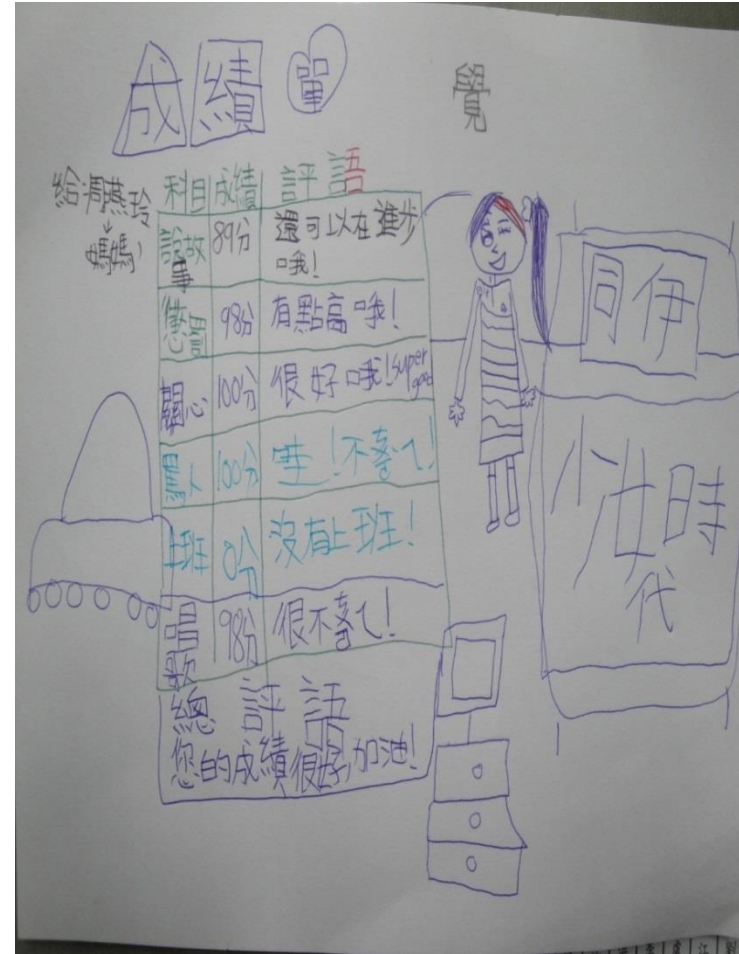 成績單
覺
給:周燕玲
媽媽
科目 成績 評語
說故事 89分 還可以在進步
哦!
懲罰 98分 有點高哦!
關心 100分 很好哦!super
good
罵人 100分 哇!不ㄟ!
上班 0分 沒有上班!
唱歌 98分 很不ㄟ!
總評語
您的成績很好,加油!
同伊
少女時
代